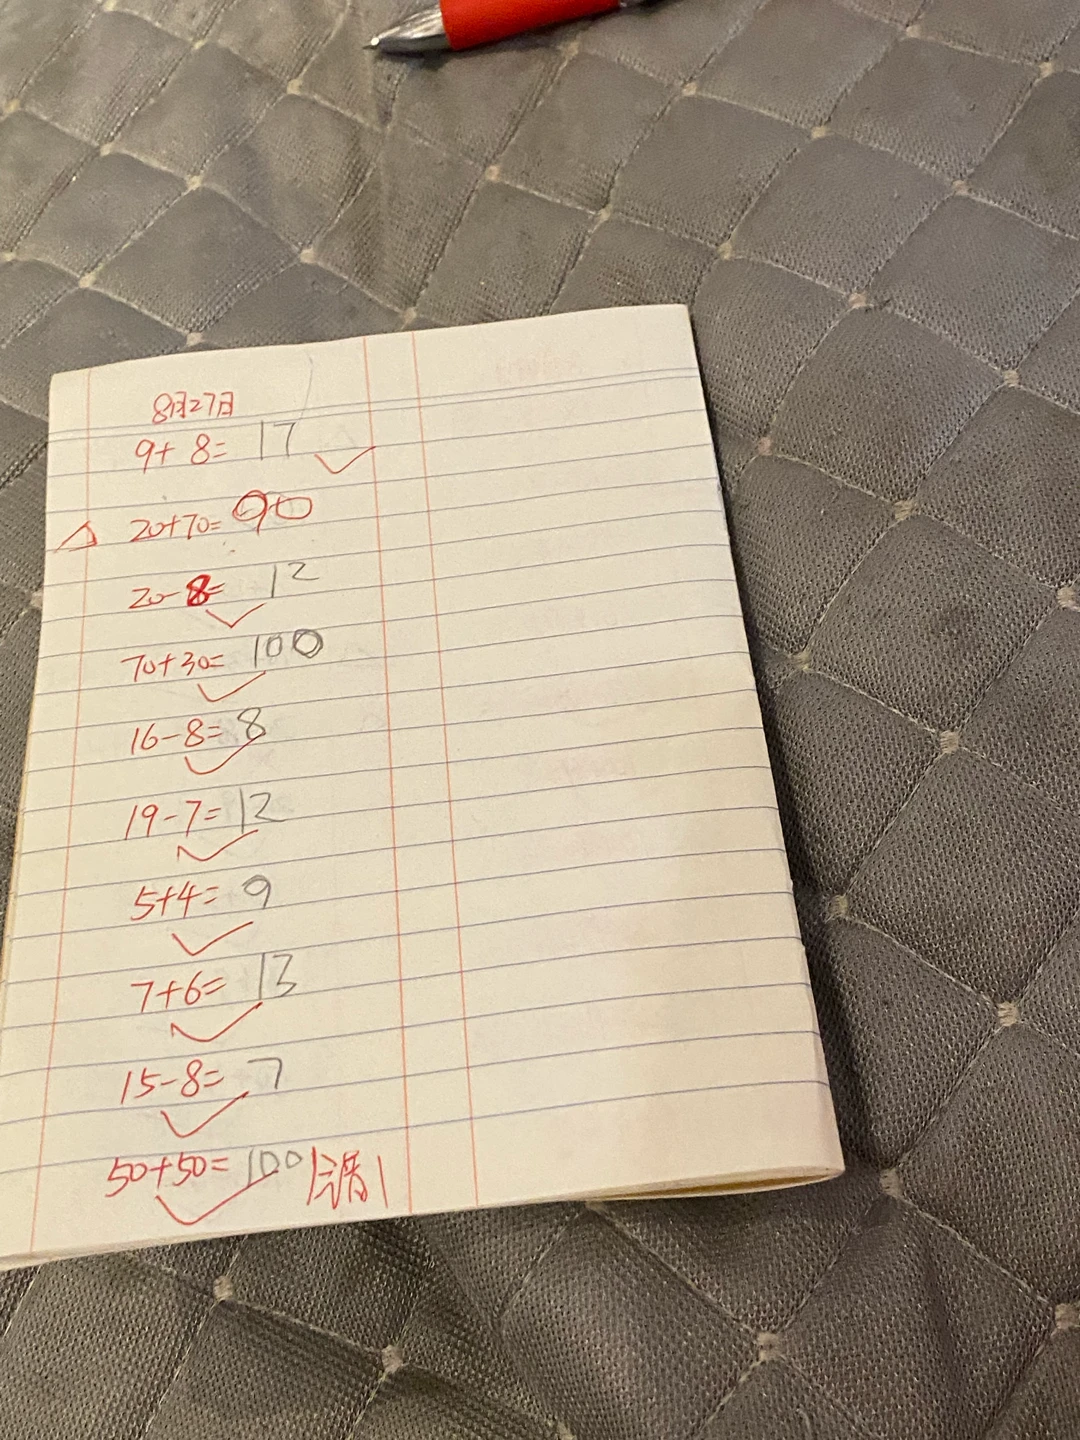 8月27日
9+8=17
20+70=90
20-8=12
70+30=100
16-8=8
19-7=12
5+4=9
7+6=13
15-8=7
50+50=100